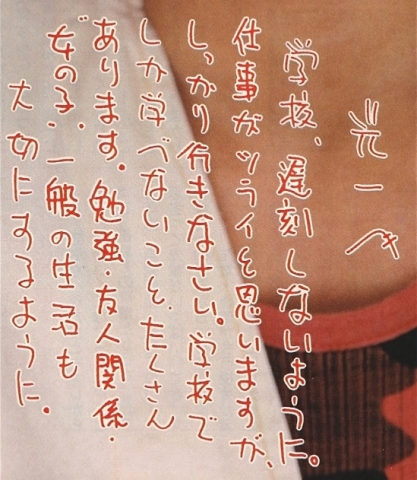 光一へ
学校、遅刻しないように。
仕事がツライと思いますが、
しっかり行きなさい。学校で
しか学べないこと、たくさん
あります。勉強・友人関係・
女の子、一般の生活も
大切にするように。